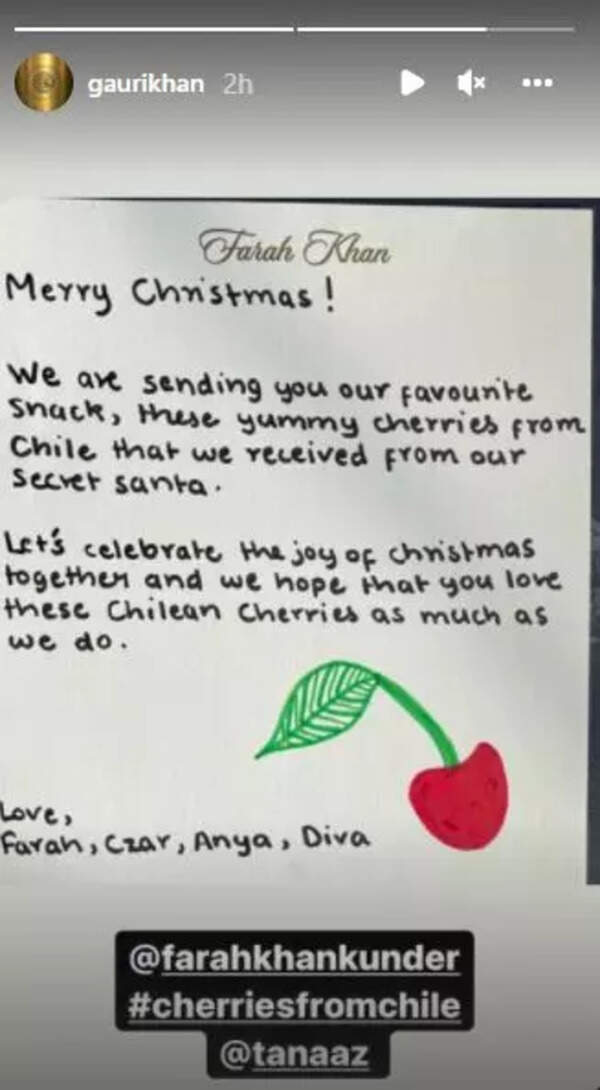 gaurikhan 2h
Farah Khan
Merry Christmas!
We are sending you our favourite
snack, these yummy cherries from
Chile that we received from our
secret santa.
Let's celebrate the joy of christmas
together and we hope that you love
these Chilean Cherries as much as
we do.
Love,
Farah, Czar, Anya, Diva
@farahkhankunder
#cherriesfromchile
@tanaaz